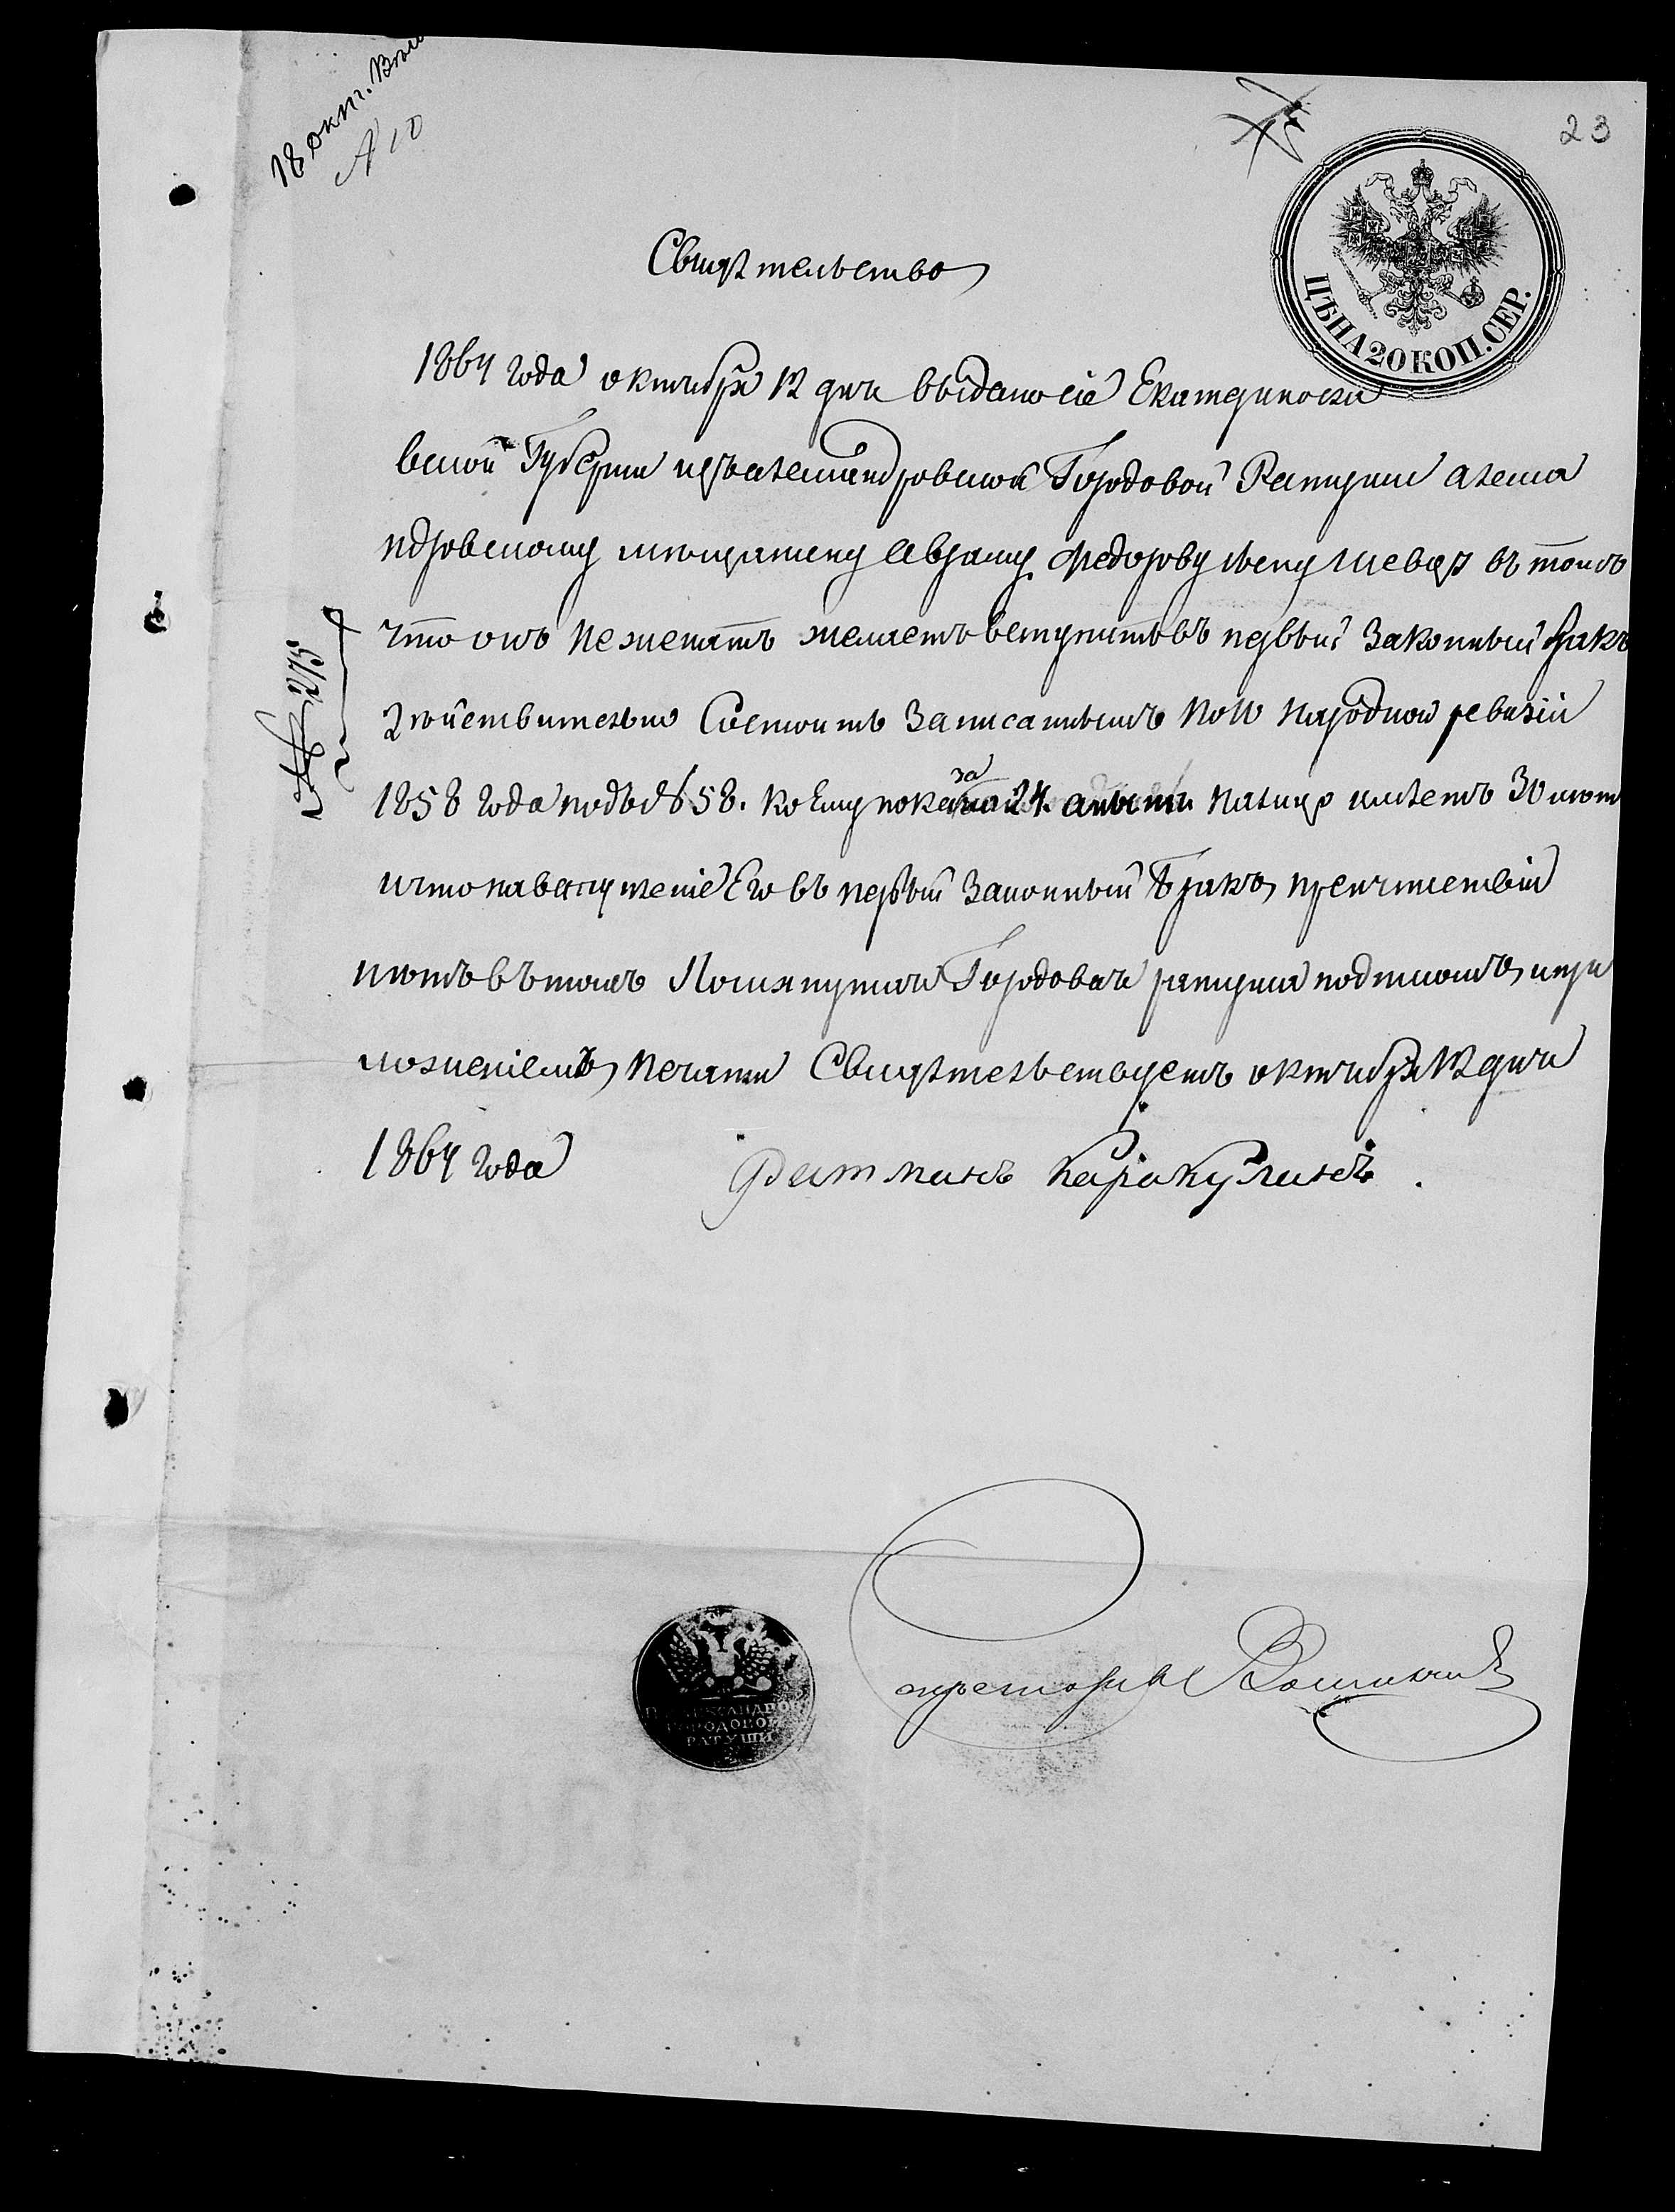 18 окт.
№ 10
23
ЦѢНА 20 КОП. СЕР.
Свидѣтельство
1864 года октября 12 дня выдано сіе Екатеринослав
вской Губерніи изъ александровской Городовой Ратуши алекса
ндровскому мѣщанину Авраму Федорову въ томъ
что онъ неженатъ желаетъ вступить въ первый Законный бракъ
дѣйствительно Состоитъ Записаннымъ по 10 народной ревизіи
1858 года подъ № 58. коему показано
за
24 а нынѣ имѣетъ 30 лѣтъ
и что на вступленіе Его въ первый Законный Бракъ препятствій
нѣтъ въ томъ Помянутая Городовая ратуша подписомъ и при
ложеніемъ Печати Свидѣтельствуетъ октября 12 дня
1864 года
Ратманъ
№ 275
ГОРОДОВОЙ
РАТУШИ